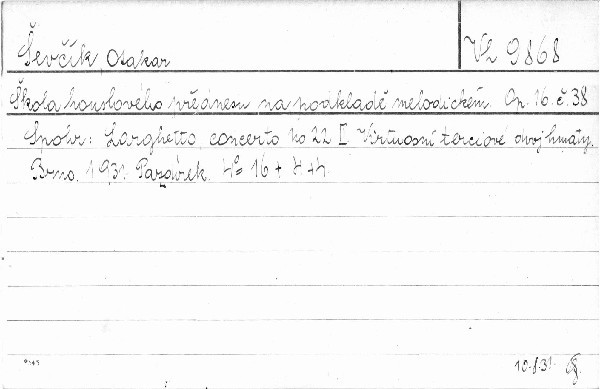 Ševčík Otakar
Vh 9868
Škola houslového přednesu na podkladě melodickém. Op. 16. č. 38
Spohr: Larghetto, concerto No 22 I. Virtuosní terciové dvojhmaty.
Brno. 1931. Pazdírek. 4° 16 + 4 + 4.
10.8.31.